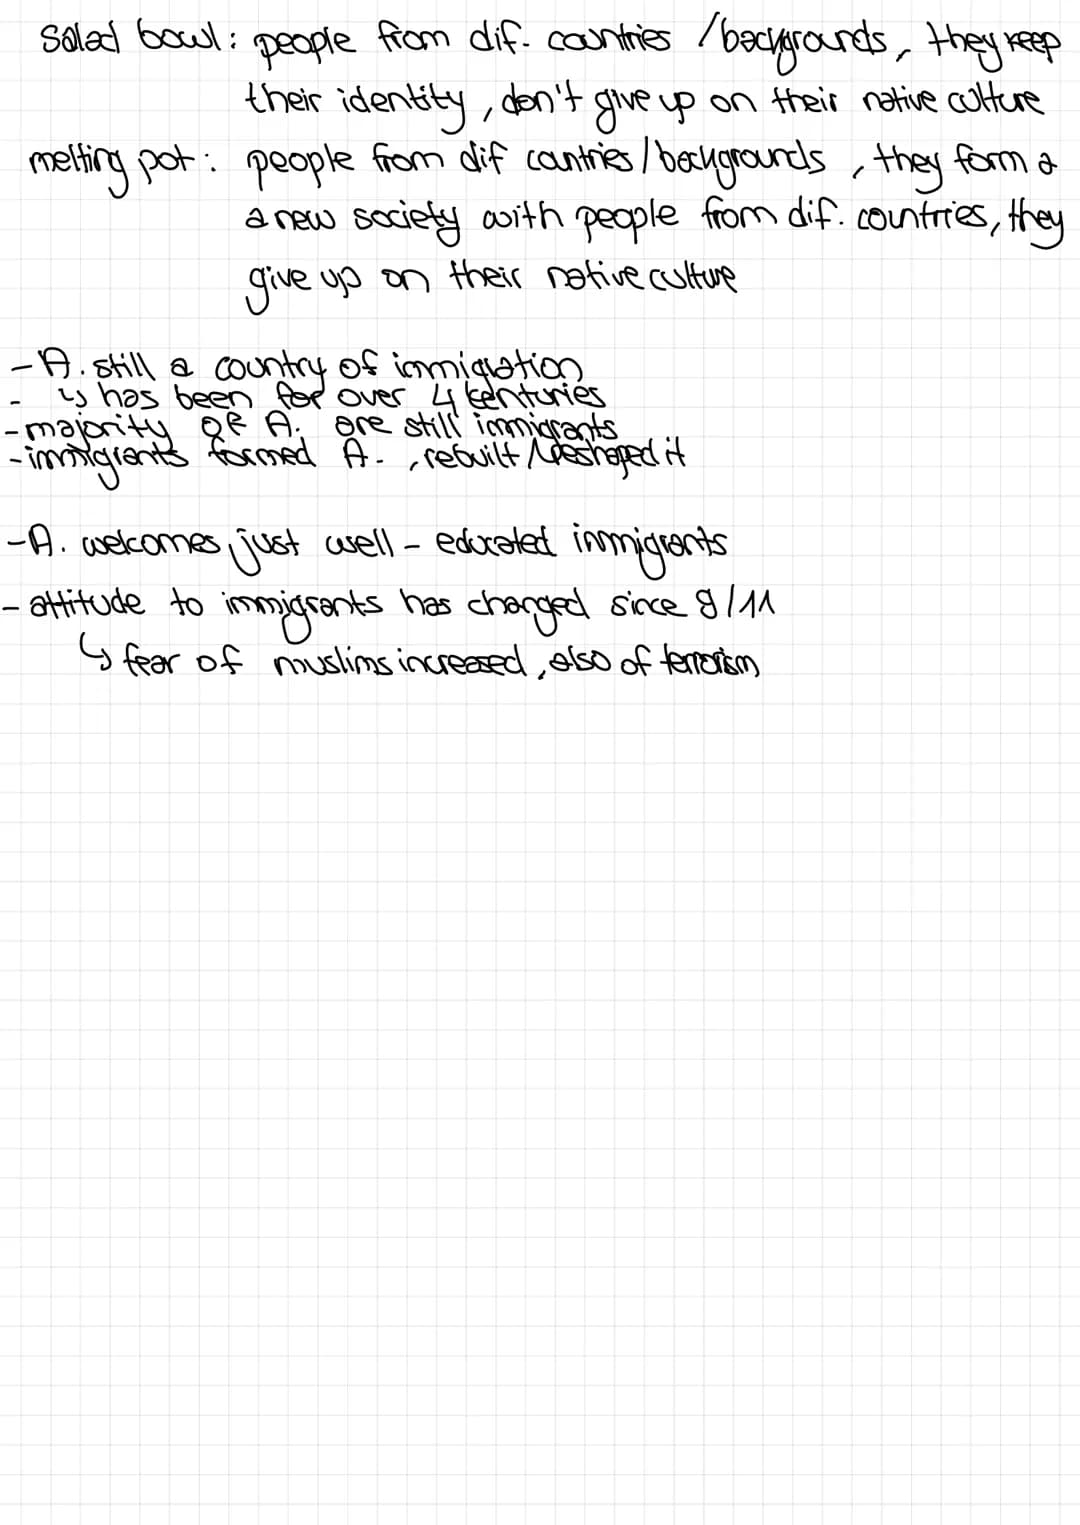 Salad bowl: people from dif. countries / backgrounds, they keep
their identity, don't give up on their native culture
melting pot: people from dif countries / backgrounds, they form a
a new society with people from dif. countries, they
give up on their native culture
- A. still a country of immigration
- ↳ has been for over 4 centuries
- majority of A. are still immigrants
- immigrants formed A., rebuilt / reshaped it
- A. welcomes just well-educated immigrants
- attitude to immigrants has changed since 9/11
↳ fear of muslims increased, also of terrorism